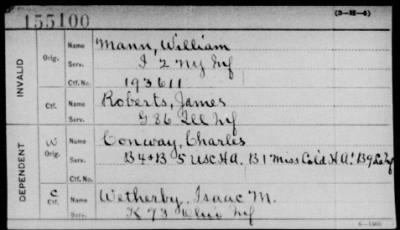 155100
(3-H-4)
INVALID
Orig.
Name Mann, William
Serv. I 2 NY Inf
Ctf. No. 193611
Ctf.
Name Roberts, James
Serv. G 86 Ill Inf
DEPENDENT
W
Orig.
Name Conway, Charles
Serv. B 4 & B 5 USC H A. B 1 Miss Cold H A. B 9 La Inf
C
Ctf.
Name Wetherby, Isaac M.
Serv. K 73 Ohio Inf